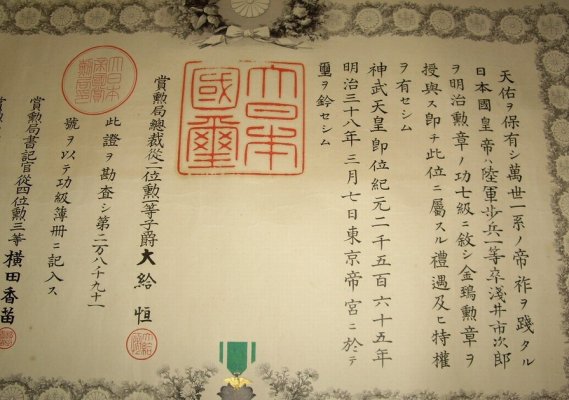 天佑ヲ保有シ萬世一系ノ帝祚ヲ踐タル
日本國皇帝ハ陸軍步兵一等卒淺井市次郎
ヲ明治勲章ノ功七級ニ敘シ金鵄勲章ヲ
授與ス即チ此位ニ屬スル禮遇及ヒ特權
ヲ有セシム
神武天皇即位紀元二千五百六十五年
明治三十八年三月七日東京帝宮ニ於テ
璽ヲ鈐セシム
大日本
國璽
賞勲局總裁從二位勲一等子爵大給恒
此證ヲ勘査シ第二万八千九十一
號ヲ以テ功級薄册ニ記入ス
賞勲局書記官從四位勲三等橫田香苗